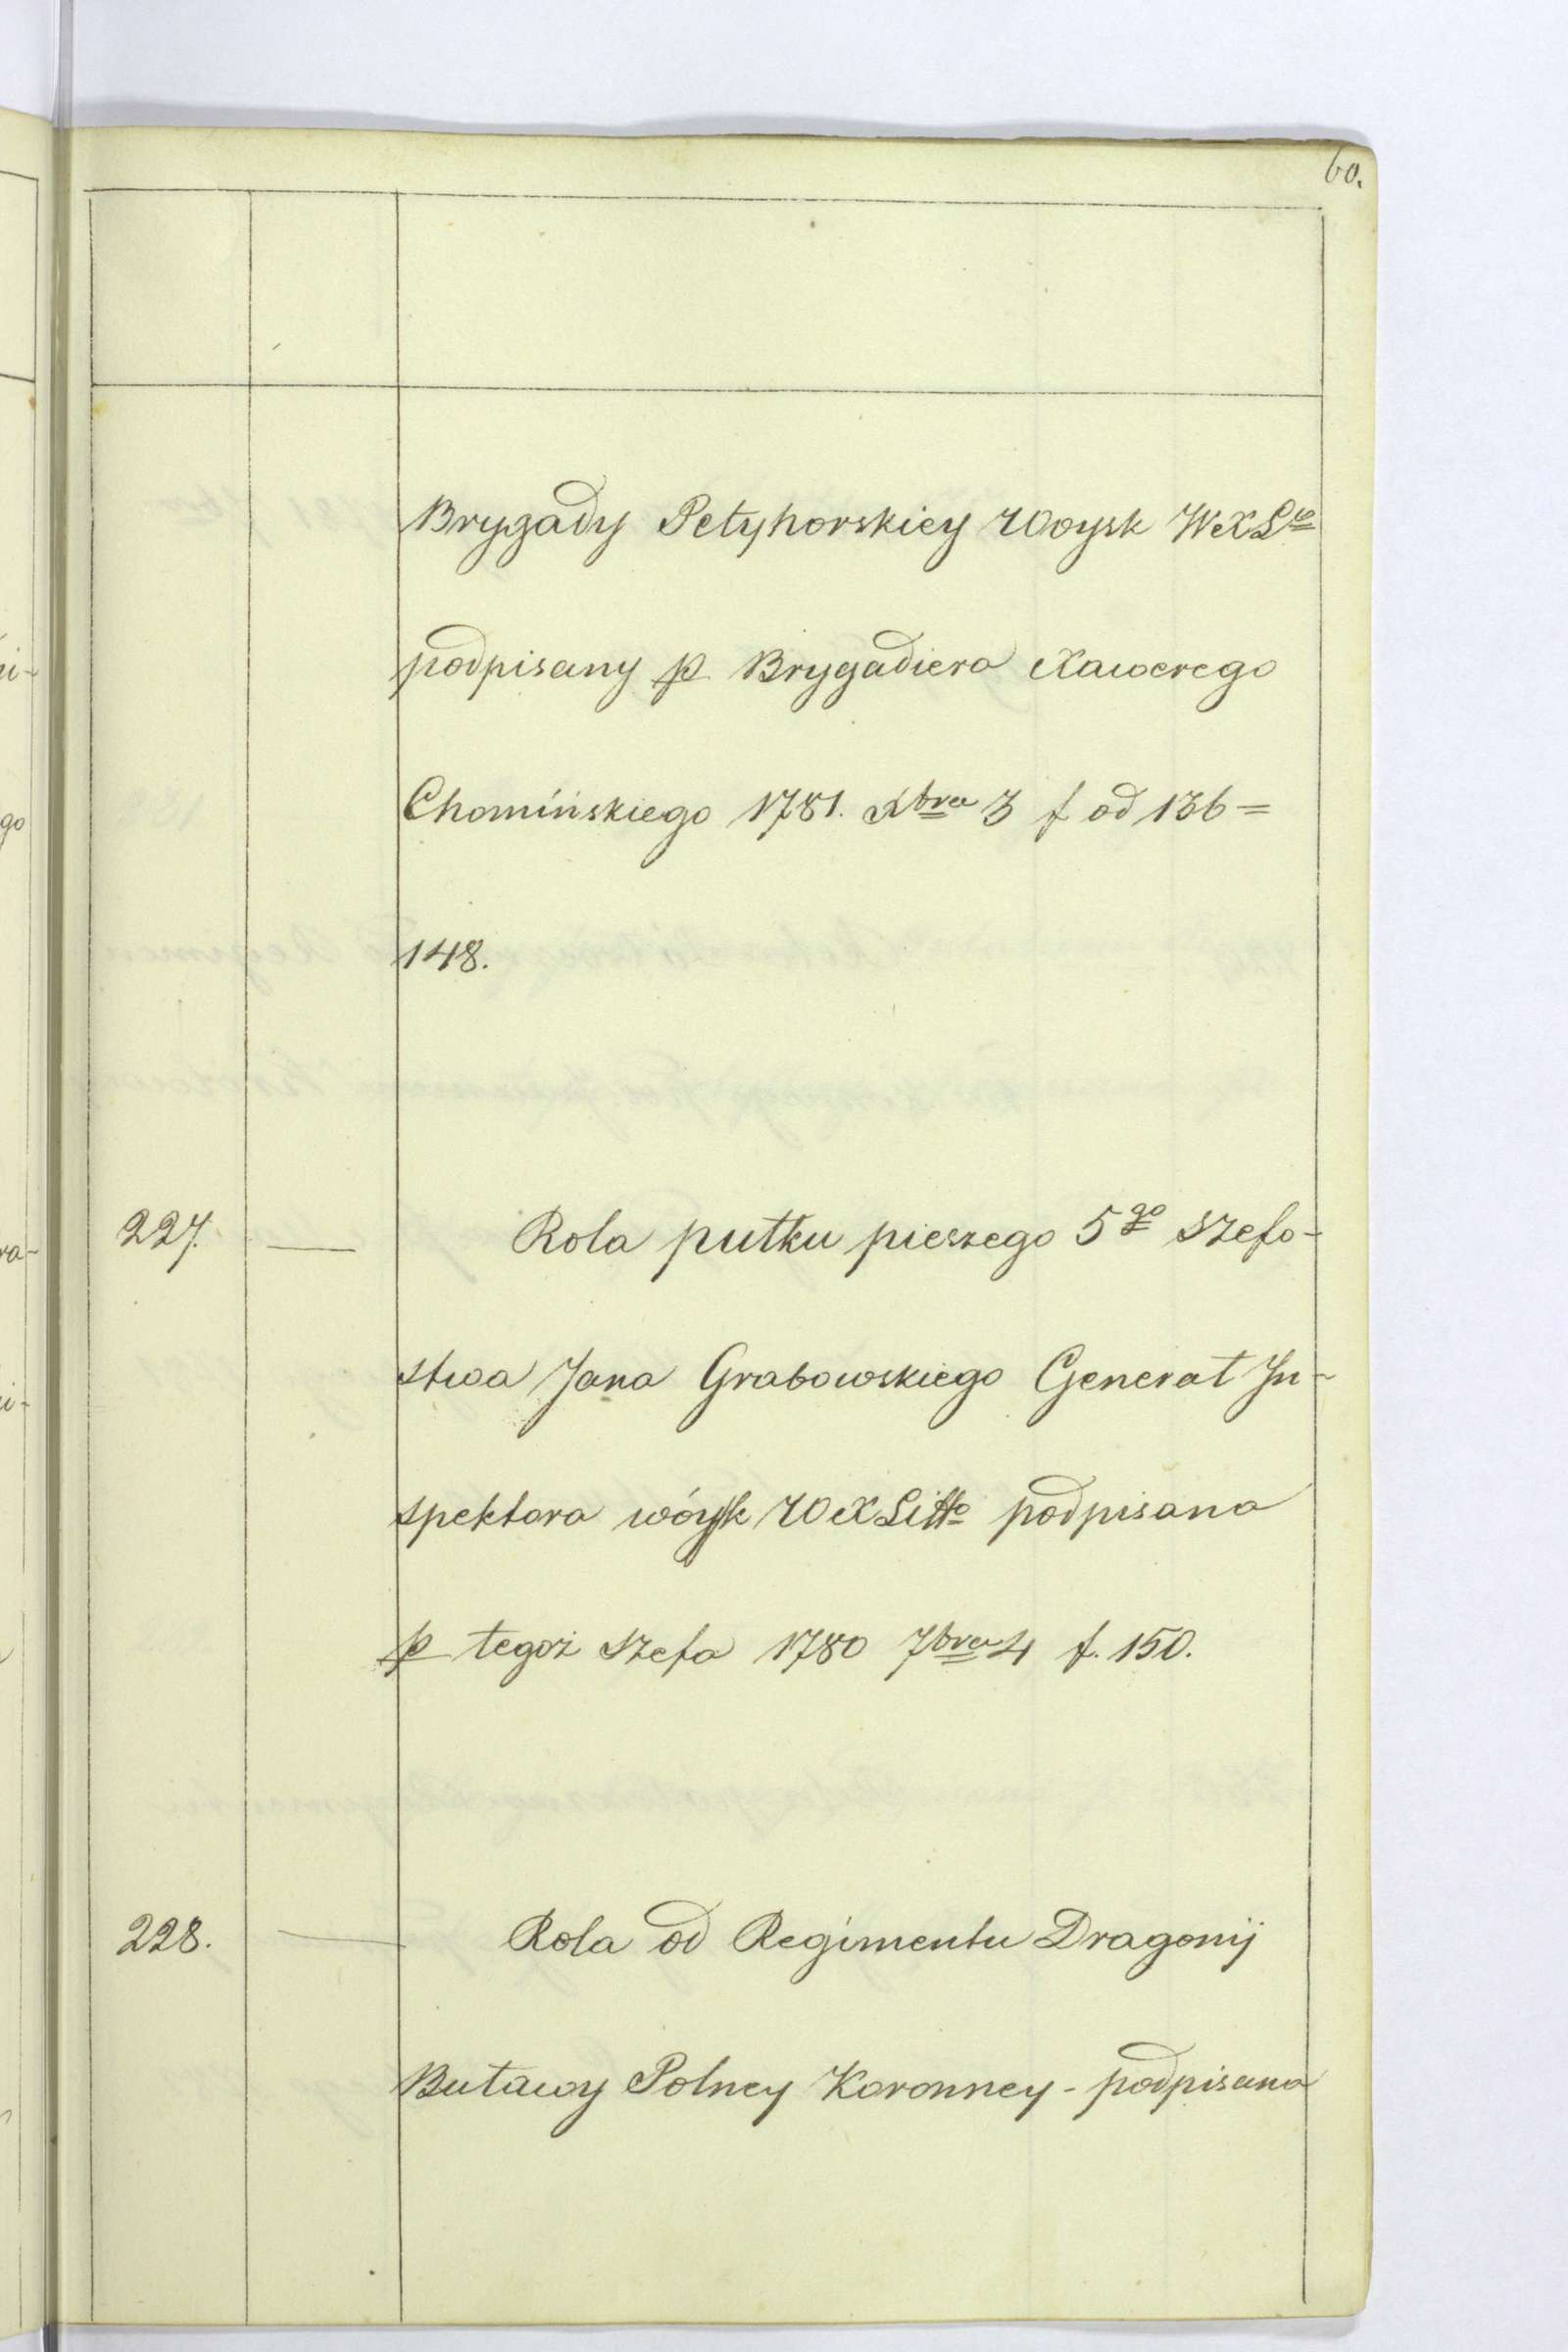 60.
Brygady Petyhorskiey Woysk WXL<sup>go</sup>
podpisany p Brygadiera Xawerego
Chomińskiego 1781. Xbra 3 f od 136=
148.
227. — Rola pułku pieszego 5go Szefo-
stwa Jana Grabowskiego Generał In-
spektora wóysk WXLitto podpisana
p tegoż Szefa 1780 7bra 4 f. 150.
228. — Rola od Regimentu Dragonij
Buławy Polney Koronney - podpisana